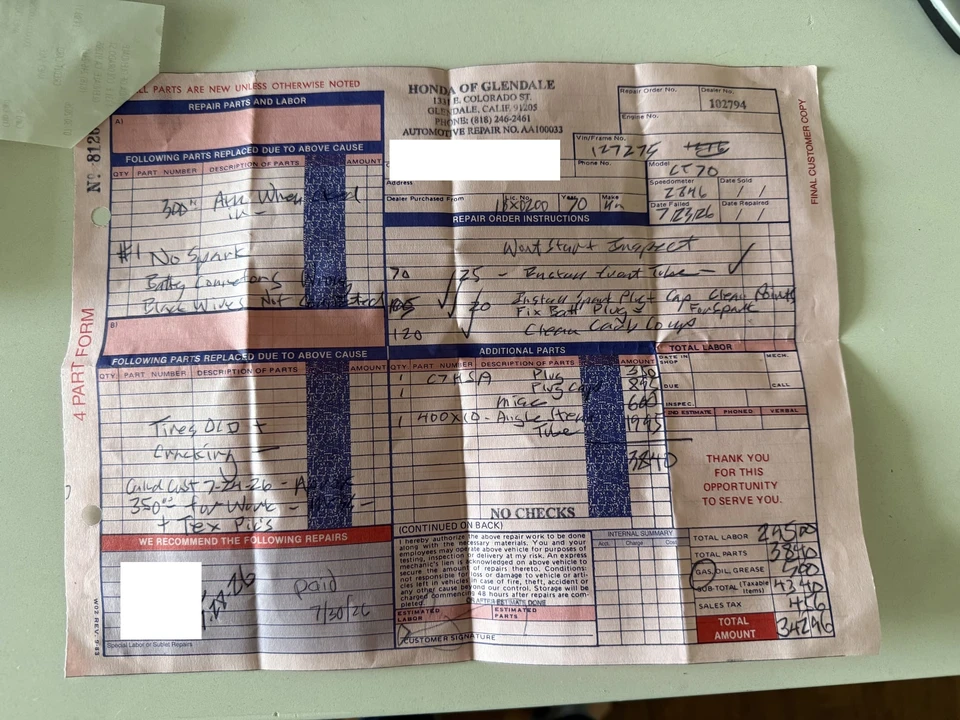 ALL PARTS ARE NEW UNLESS OTHERWISE NOTED
REPAIR PARTS AND LABOR
A)
FOLLOWING PARTS REPLACED DUE TO ABOVE CAUSE
QTY PART NUMBER DESCRIPTION OF PARTS AMOUNT
300"
#1 No Spark
Black Wires Not Connected
B)
FOLLOWING PARTS REPLACED DUE TO ABOVE CAUSE
QTY. PART NUMBER DESCRIPTION OF PARTS AMOUNT
Tires OLD +
Cracking
Called Cust 7-24-26
350 for Work
+ Tex Pics
WE RECOMMEND THE FOLLOWING REPAIRS
paid
7/30/26
Special Labor or Sublet Repairs
Nº 8126
4 PART FORM
W02 REV. 5-93
HONDA OF GLENDALE
1331 E. COLORADO ST.
GLENDALE, CALIF. 91205
PHONE: (818) 246-2461
AUTOMOTIVE REPAIR NO. AA100033
Repair Order No.
Dealer No.
102794
Engine No.
Vin/Frame No.
127275
Phone No.
Model
CT70
Address
Speedometer
2846
Date Sold
/ /
Dealer Purchased From
Lic. No.
18X0200
Year
70
Make
Hn
Date Failed
7/23/26
Date Repaired
/ /
REPAIR ORDER INSTRUCTIONS
Wont Start Inspect
70 25 - Front Tube
20 Install Spark Plug + Cap Clean Points
Fix Batt Plug For Spark
120 Clean Carb
ADDITIONAL PARTS
QTY. PART NUMBER DESCRIPTION OF PARTS AMOUNT
1 C7HSA Plug 350
1 Plug Cap 895
misc 600
1 400x10 - Angle Stem 1995
Tube
3840
NO CHECKS
(CONTINUED ON BACK)
I hereby authorize the above repair work to be done along with the necessary materials. You and your employees may operate above vehicle for purposes of testing, inspection or delivery at my risk. An express mechanic's lien is acknowledged on above vehicle to secure the amount of repairs thereto. Conditions: not responsible for loss or damage to vehicle or articles left in vehicles in case of fire, theft, accident or any other cause beyond our control. Storage will be charged commencing 48 hours after repairs are completed.
ESTIMATED LABOR
ESTIMATED PARTS
CUSTOMER SIGNATURE
TOTAL LABOR
DATE IN SHOP
MECH.
DUE
CALL
INSPEC.
2nd ESTIMATE PHONED VERBAL
THANK YOU
FOR THIS
OPPORTUNITY
TO SERVE YOU.
INTERNAL SUMMARY
Acct. Charge Cost
TOTAL LABOR 29500
TOTAL PARTS 3840
GAS, OIL, GREASE 500
SUB-TOTAL (Taxable Items) 4340
SALES TAX 456
TOTAL AMOUNT 34296
FINAL CUSTOMER COPY